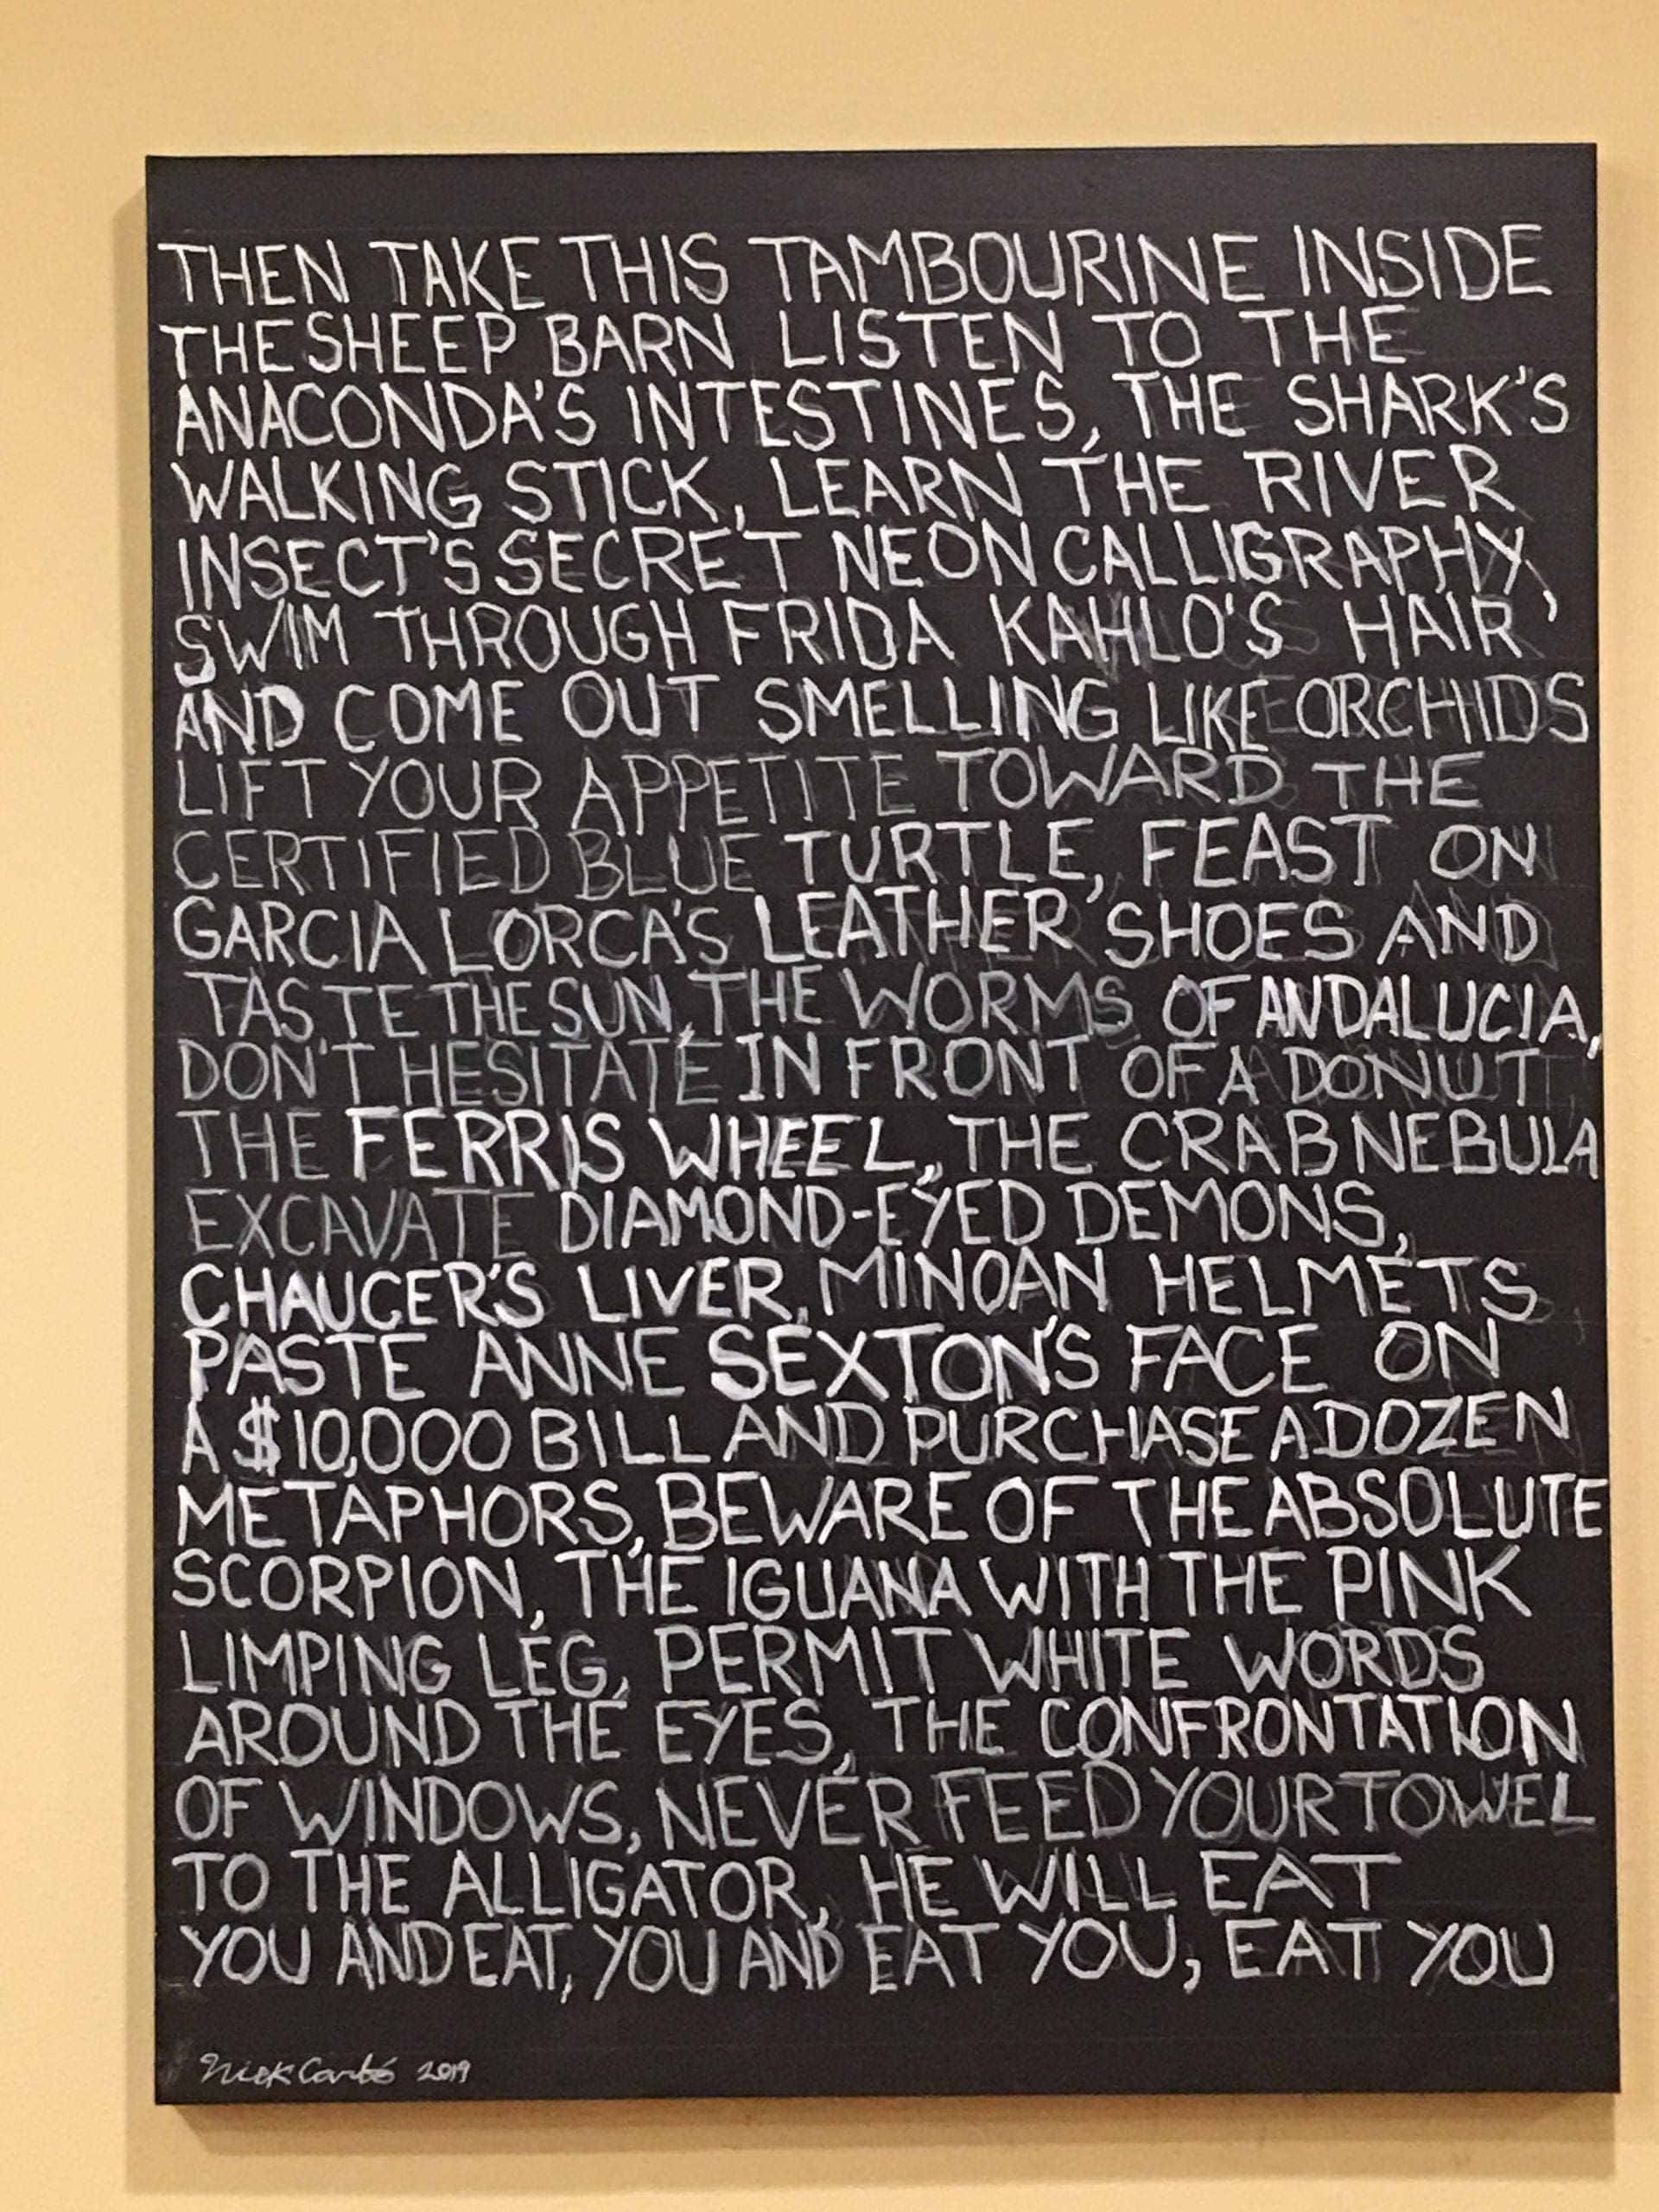 THEN TAKE THIS TAMBOURINE INSIDE
THE SHEEP BARN LISTEN TO THE
ANACONDA'S INTESTINES, THE SHARK'S
WALKING STICK, LEARN THE RIVER
INSECT'S SECRET NEON CALLIGRAPHY,
SWIM THROUGH FRIDA KAHLO'S HAIR
AND COME OUT SMELLING LIKE ORCHIDS
LIFT YOUR APPETITE TOWARD THE
CERTIFIED BLUE TURTLE, FEAST ON
GARCIA LORCA'S LEATHER SHOES AND
TASTE THE SUN, THE WORMS OF ANDALUCIA,
DON'T HESITATE IN FRONT OF A DONUT,
THE FERRIS WHEEL, THE CRAB NEBULA
EXCAVATE DIAMOND-EYED DEMONS,
CHAUCER'S LIVER, MINOAN HELMETS
PASTE ANNE SEXTON'S FACE ON
A $10,000 BILL AND PURCHASE A DOZEN
METAPHORS, BEWARE OF THE ABSOLUTE
SCORPION, THE IGUANA WITH THE PINK
LIMPING LEG, PERMIT WHITE WORDS
AROUND THE EYES, THE CONFRONTATION
OF WINDOWS, NEVER FEED YOUR TOWEL
TO THE ALLIGATOR, HE WILL EAT
YOU AND EAT, YOU AND EAT YOU, EAT YOU
Nick Carbó 2019